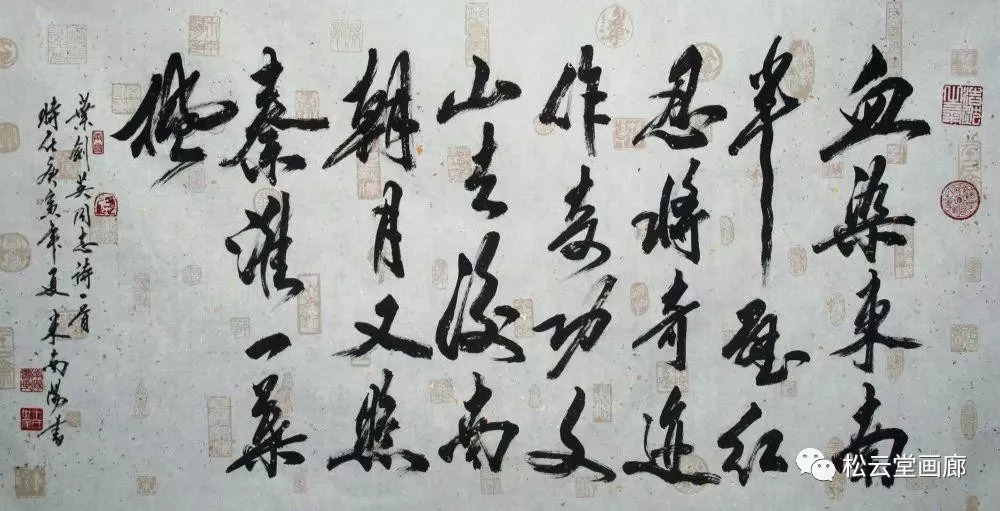 血染東南
半壁红
忍將奇迹
作奇功文
山去後南
朝月又照
秦淮一葉
楓
葉剑英同志诗一首
時在庚寅年夏 米南陽書
松云堂画廊